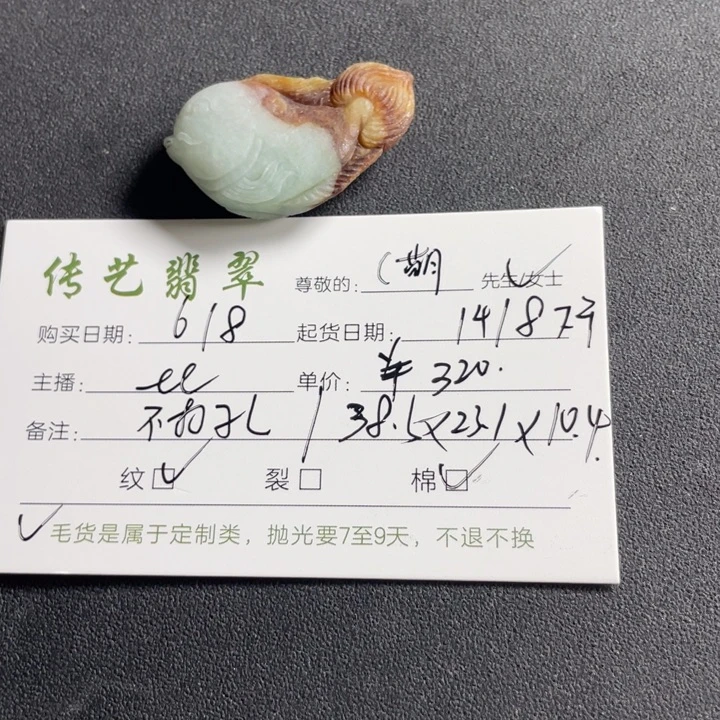 传艺翡翠
尊敬的: 先生/女士
购买日期: 618 起货日期: 14187
主播: 单价: ¥320.
备注: 不打孔 / 38.5×23.1×10.4
纹 裂 棉
毛货是属于定制类，抛光要7至9天，不退不换